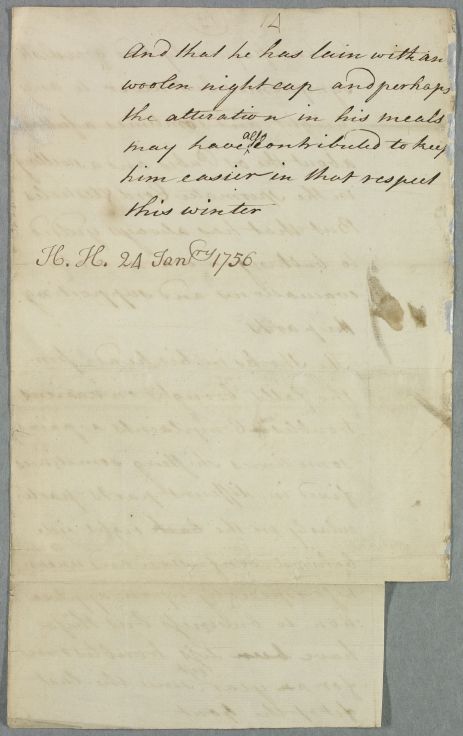 14
And that he has lain with an
woolen night cap and perhaps
the alteration in his meals
may have also contributed to keep
him easier in that respect
this winter
H. H. 24 Janry 1756